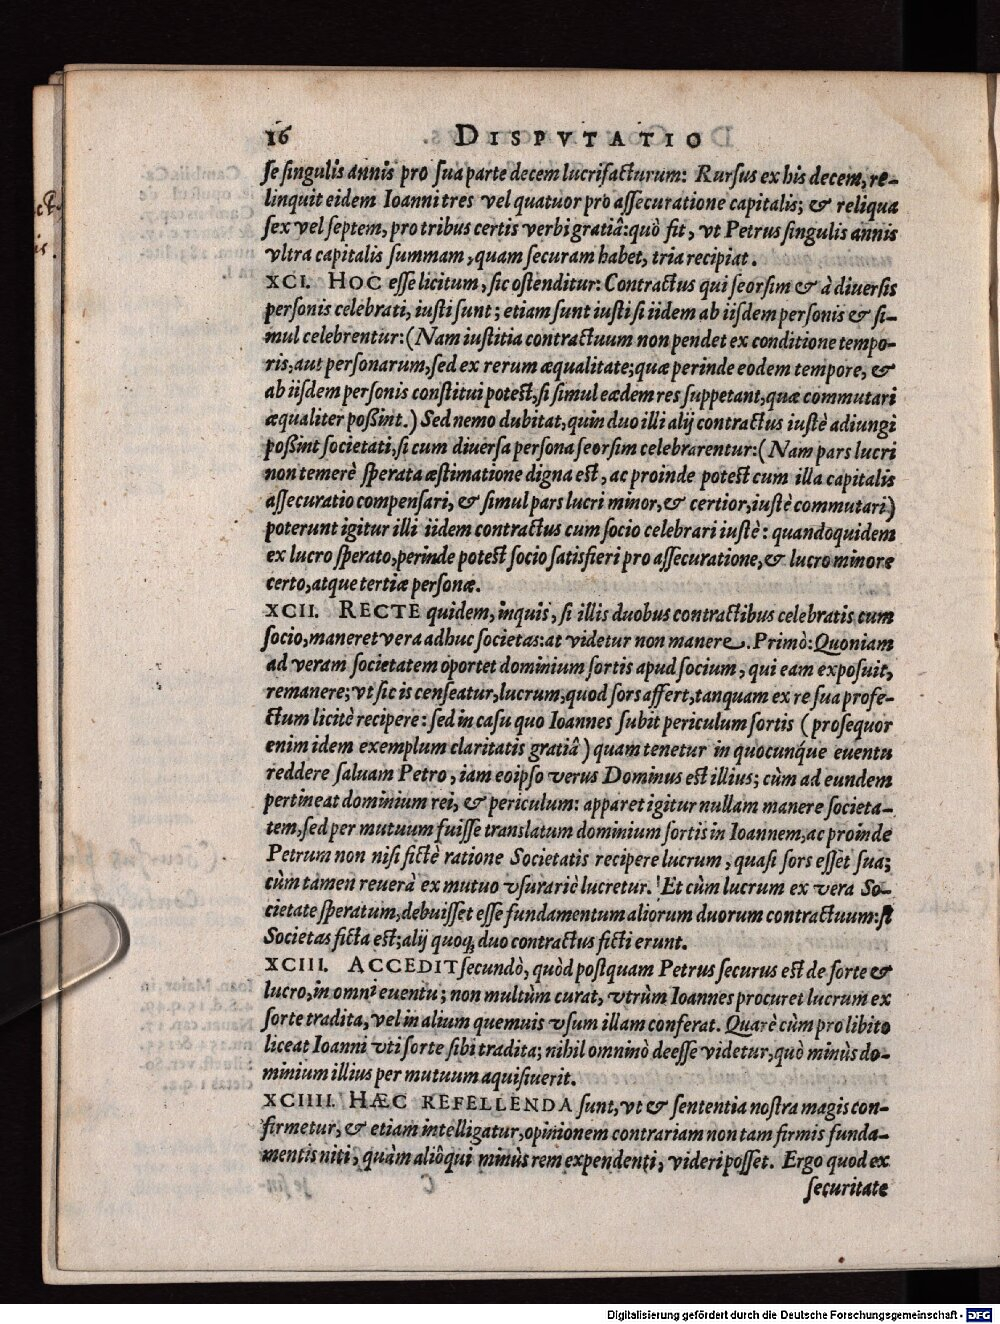 16 DISPVTATIO
se singulis annis pro sua parte decem lucrifacturum: Rursus ex his decem, re-
linquit eidem Ioanni tres vel quatuor pro assecuratione capitalis; & reliqua
sex vel septem, pro tribus certis verbi gratiâ: quò fit, vt Petrus singulis annis
vltra capitalis summam, quam securam habet, tria recipiat.
XCI. HOC esse licitum, sic ostenditur: Contractus qui seorsim & à diuersis
personis celebrati, iusti sunt; etiam sunt iusti si iidem ab iisdem personis & si-
mul celebrentur: (Nam iustitia contractuum non pendet ex conditione tempo-
ris, aut personarum, sed ex rerum æqualitate; quæ perinde eodem tempore, &
ab iisdem personis constitui potest, si simul eædem res suppetant, quæ commutari
æqualiter poßint.) Sed nemo dubitat, quin duo illi alij contractus iustè adiungi
poßint societati, si cum diuersa persona seorsim celebrarentur: (Nam pars lucri
non temerè sperata æstimatione digna est, ac proinde potest cum illa capitalis
assecuratio compensari, & simul pars lucri minor, & certior, iustè commutari)
poterunt igitur illi iidem contractus cum socio celebrari iustè: quandoquidem
ex lucro sperato, perinde potest socio satisfieri pro assecuratione, & lucro minore
certo, atque tertiæ personæ.
XCII. RECTE quidem, inquis, si illis duobus contractibus celebratis cum
socio, maneret vera adhuc societas: at videtur non manere. Primò: Quoniam
ad veram societatem oportet dominium sortis apud socium, qui eam exposuit,
remanere; vt sic is censeatur, lucrum, quod sors affert, tanquam ex re sua profe-
ctum licitè recipere: sed in casu quo Ioannes subit periculum sortis (prosequor
enim idem exemplum claritatis gratiâ) quam tenetur in quocunque euentu
reddere saluam Petro, iam eoipso verus Dominus est illius; cùm ad eundem
pertineat dominium rei, & periculum: apparet igitur nullam manere societa-
tem, sed per mutuum fuisse translatum dominium sortis in Ioannem, ac proinde
Petrum non nisi fictè ratione Societatis recipere lucrum, quasi sors esset sua;
cùm tamen reuerà ex mutuo vsurariè lucretur. Et cùm lucrum ex vera So-
cietate speratum, debuisset esse fundamentum aliorum duorum contractuum: si
Societas ficta est; alij quoq; duo contractus ficti erunt.
XCIII. ACCEDIT secundò, quòd postquam Petrus securus est de sorte &
lucro, in omni euentu; non multùm curat, vtrùm Ioannes procuret lucrum ex
sorte tradita, vel in alium quemuis vsum illam conferat. Quarè cùm pro libito
liceat Ioanni vti sorte sibi tradita; nihil omninò deesse videtur, quò minùs do-
minium illius per mutuum aquisiuerit.
XCIIII. HÆC REFELLENDA sunt, vt & sententia nostra magis con-
firmetur, & etiam intelligatur, opinionem contrariam non tam firmis funda-
mentis niti, quàm aliôqui minùs rem expendenti, videri posset. Ergo quod ex
securitate
Digitalisierung gefördert durch die Deutsche Forschungsgemeinschaft - DFG